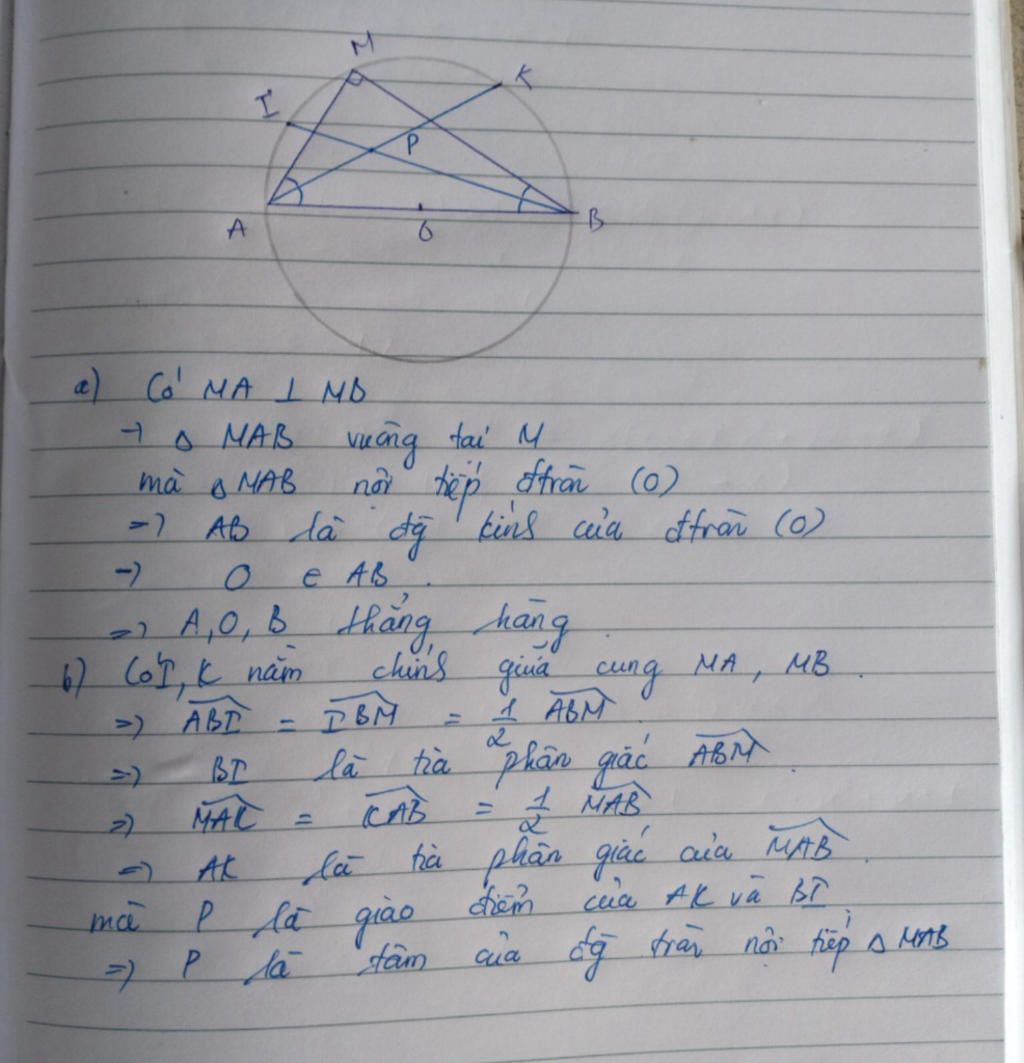 M
K
I
P
A
O
B
a) Có MA ⊥ MB
→ △ MAB vuông tại M
mà △ MAB nội tiếp đtròn (O)
=) AB là đg kính của đtròn (O)
=) O ∈ AB.
=) A, O, B thẳng hàng.
b) Có I, K nằm chính giữa cung MA, MB.
=) \widehat{ABI} = \widehat{IBM} = \frac{1}{2} \widehat{ABM}
=) BI là tia phân giác \widehat{ABM}.
=) \widehat{MAK} = \widehat{KAB} = \frac{1}{2} \widehat{MAB}
=) AK là tia phân giác của \widehat{MAB}.
mà P là giao điểm của AK và BI
=) P là tâm của đg tròn nội tiếp △ MAB